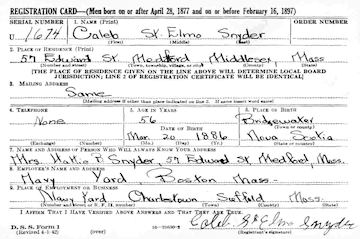 REGISTRATION CARD—(Men born on or after April 28, 1877 and on or before February 16, 1897)
SERIAL NUMBER 1. NAME (Print) ORDER NUMBER
U 1674 Caleb St. Elmo Snyder
(First) (Middle) (Last)
2. PLACE OF RESIDENCE (Print)
57 Edward St. Medford Middlesex, Mass
(Number and street) (Town, township, village, or city) (County) (State)
[THE PLACE OF RESIDENCE GIVEN ON THE LINE ABOVE WILL DETERMINE LOCAL BOARD
JURISDICTION; LINE 2 OF REGISTRATION CERTIFICATE WILL BE IDENTICAL]
3. MAILING ADDRESS
Same
[Mailing address if other than place indicated on line 2. If same insert word same]
4. TELEPHONE 5. AGE IN YEARS 6. PLACE OF BIRTH
None 56 Bridgewater
DATE OF BIRTH (Town or county)
Mar. 20 1886 Nova Scotia
(Exchange) (Number) (Mo.) (Day) (Yr.) (State or country)
7. NAME AND ADDRESS OF PERSON WHO WILL ALWAYS KNOW YOUR ADDRESS
Mrs. Hattie P. Snyder, 57 Edward St Medford, Mass.
8. EMPLOYER'S NAME AND ADDRESS
Navy Yard Boston Mass.
9. PLACE OF EMPLOYMENT OR BUSINESS
Navy Yard Charlestown Suffolk Mass.
(Number and street or R. F. D. number) (Town) (County) (State)
I AFFIRM THAT I HAVE VERIFIED ABOVE ANSWERS AND THAT THEY ARE TRUE.
D. S. S. Form 1
(Revised 4-1-42) (over) Caleb St Elmo Snyder
(Registrant's signature)